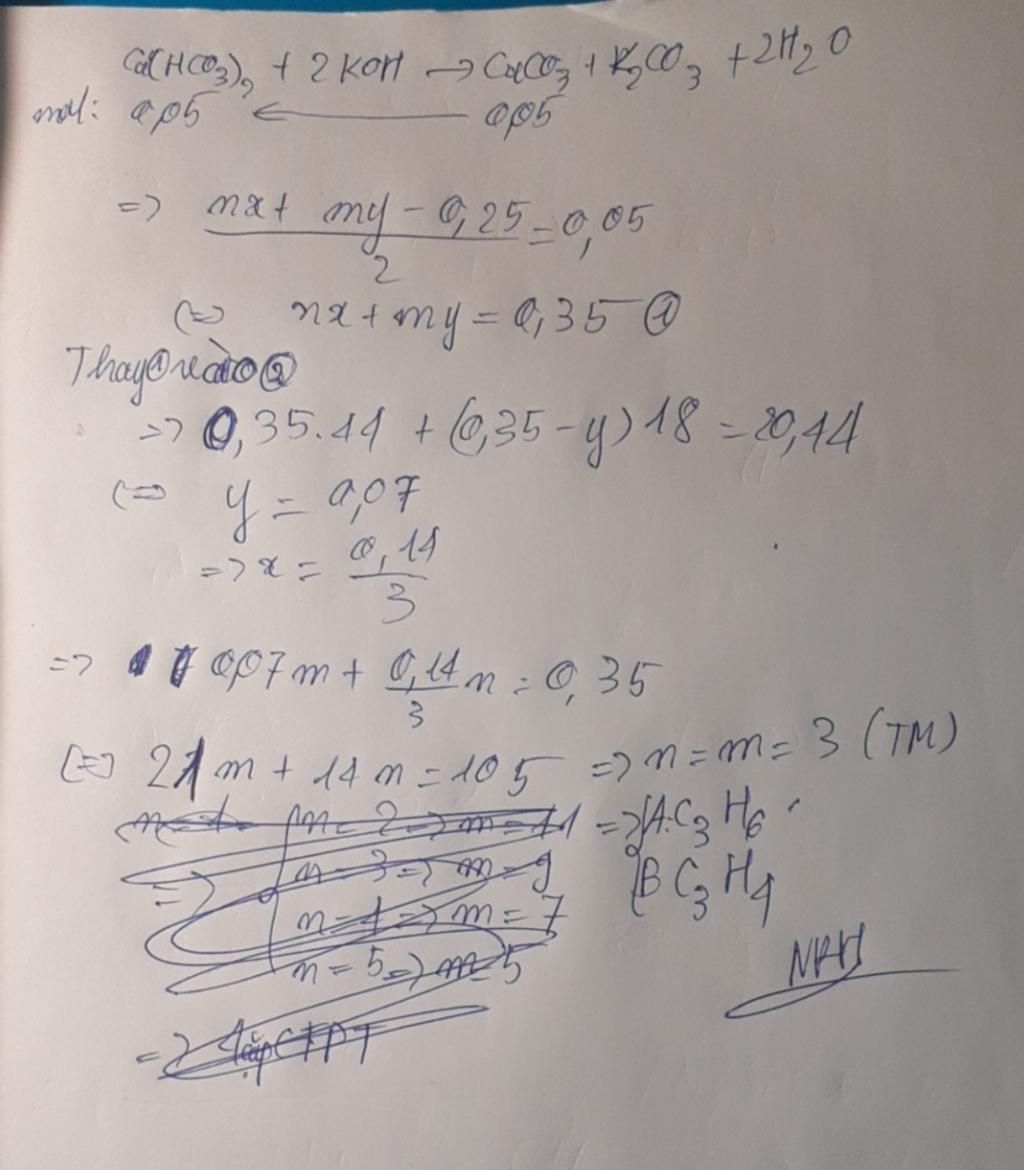 Ca(HCO₃)₂ + 2KOH → CaCO₃ + K₂CO₃ + 2H₂O
mol: 0,05 ← 0,05
=> (nx + my - 0,25)/2 = 0,05
<=> nx + my = 0,35 ①
Thay ① vào ②
=> 0,35.44 + (0,35 - y) 18 = 20,44
<=> y = 0,07
=> x = 0,14/3
=> 0,07m + 0,14/3 n = 0,35
<=> 21m + 14n = 105 => n = m = 3 (TM)
n = 2 => m = 11 => { A: C₃H₆
=> n = 3 => m = 9 B C₃H₄
n = 4 => m = 7
n = 5 => m = 5
=> CTPT